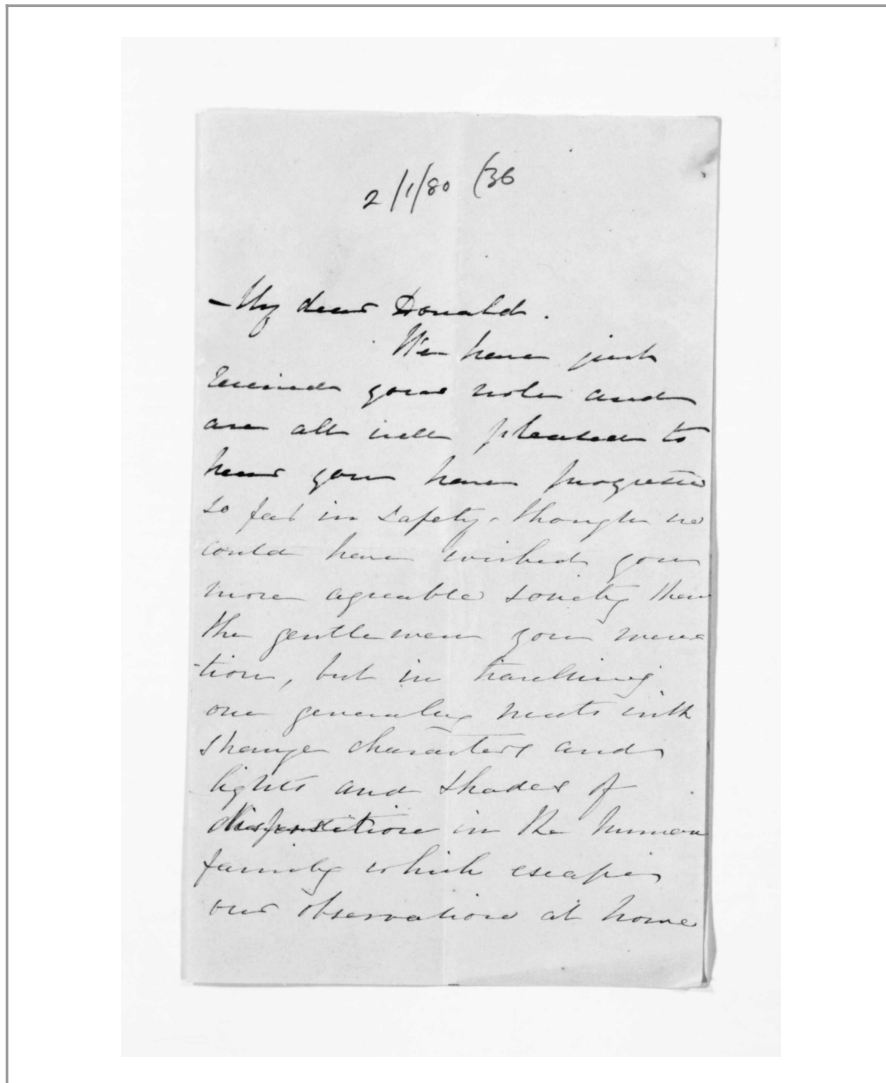 2/1/80 (36
My dear Donald.
We have just
received your note and
are all well pleased to
hear you have progressed
so far in safety - though we
could have wished you
more agreable society than
the gentlemen you men
-tion, but in travelling
one generaly meets with
strange characters and
lights and shades of
disposition in the human
family which escapes
our observation at home